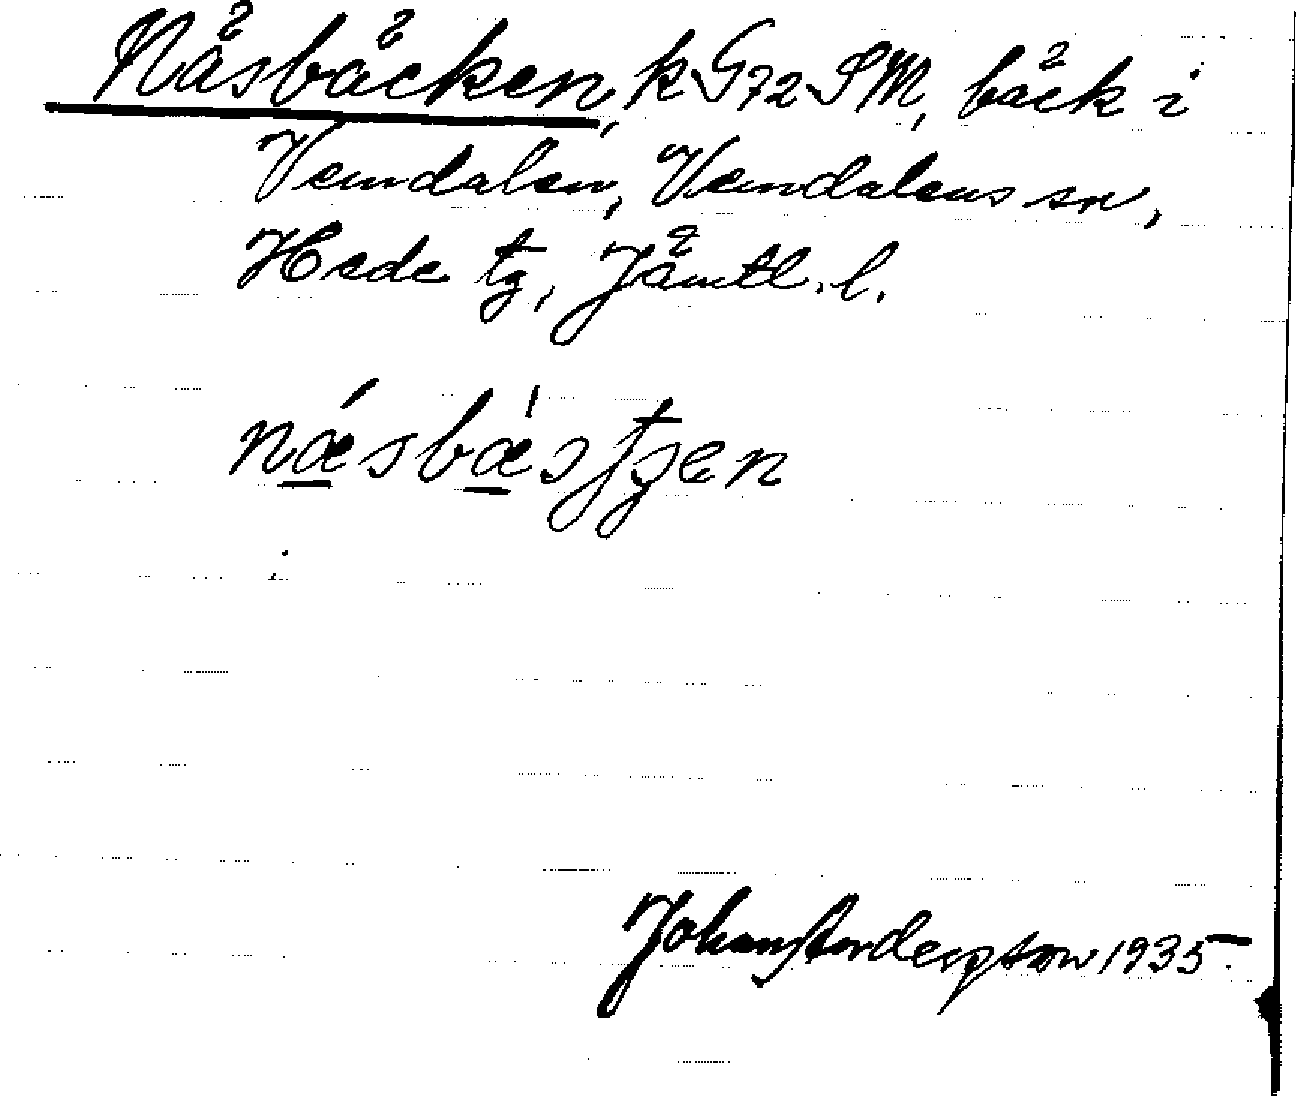 Näsbäcken, k G72 SM, bäck i
Vemdalen, Vemdalens sn,
Hede tg, Jämtl. l.
Johan Anderson 1935.